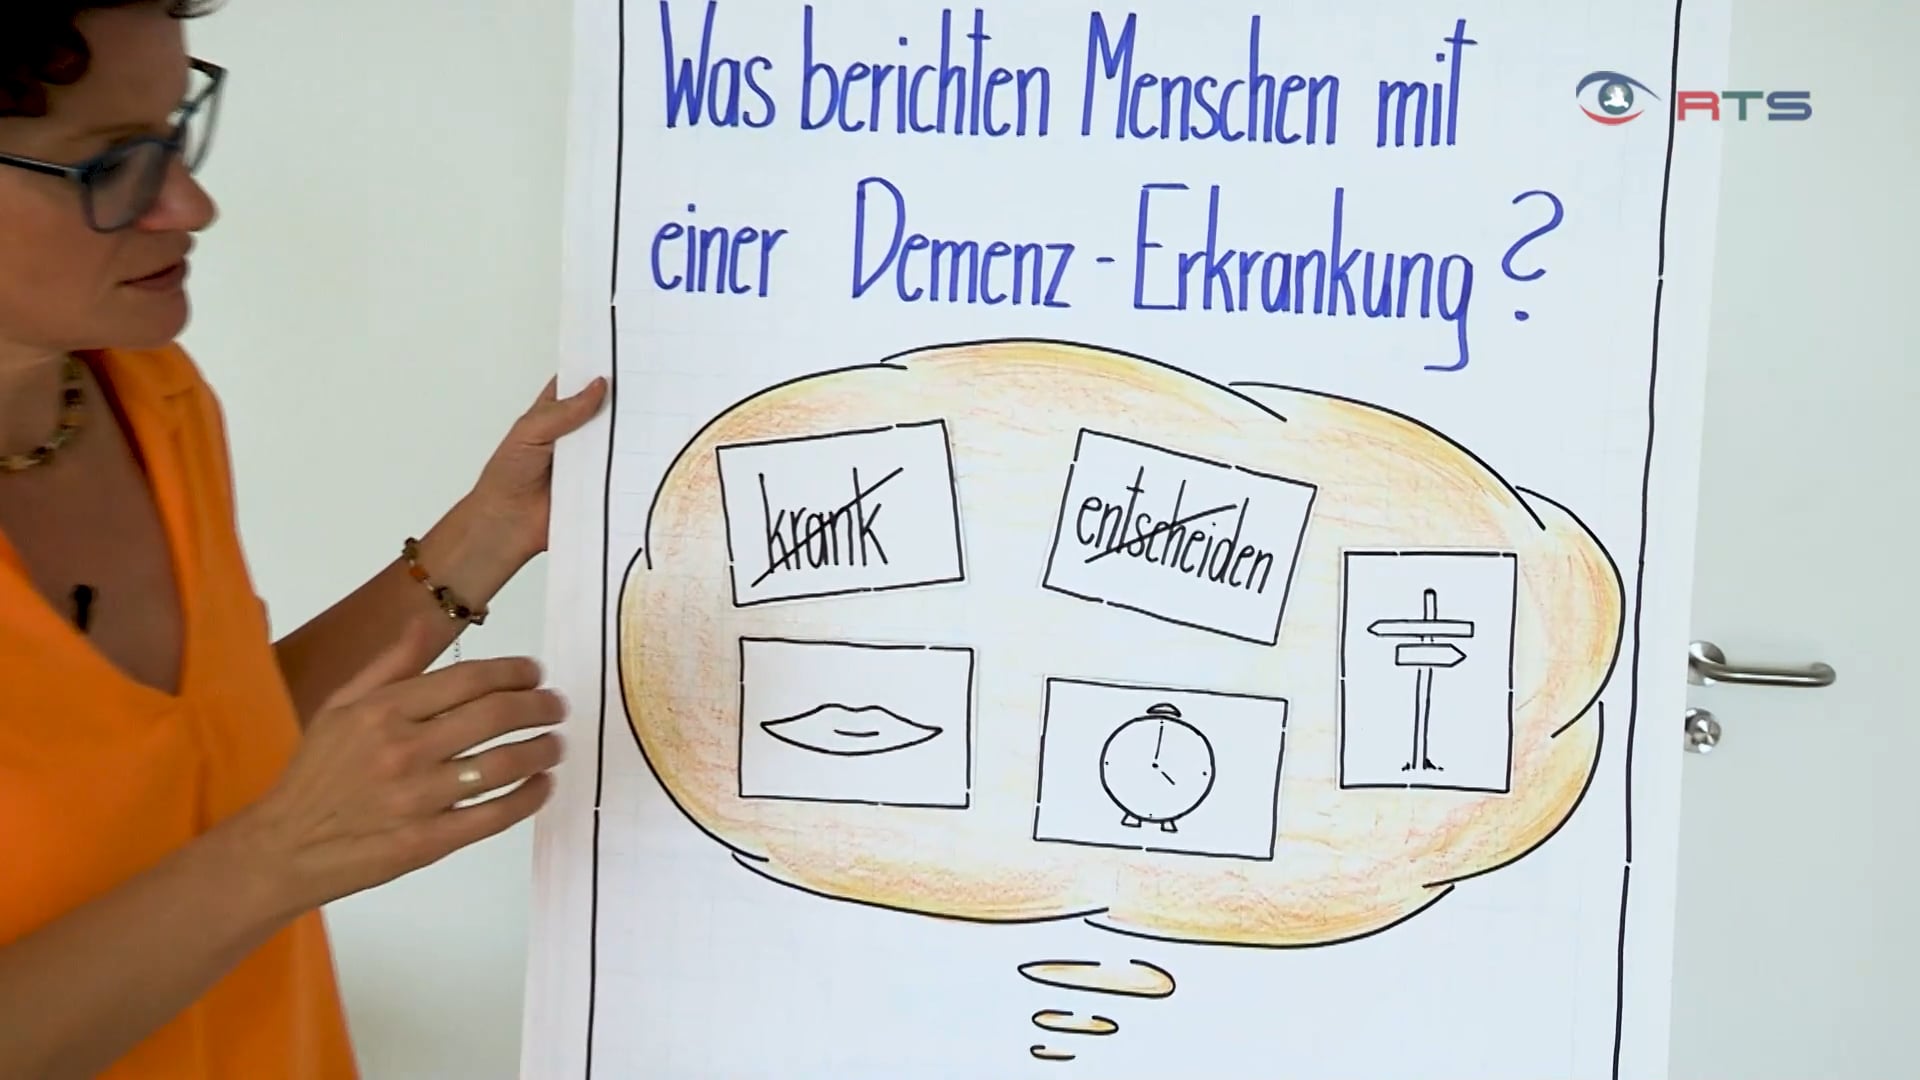 Was berichten Menschen mit
einer Demenz-Erkrankung?
RTS
krank
entscheiden